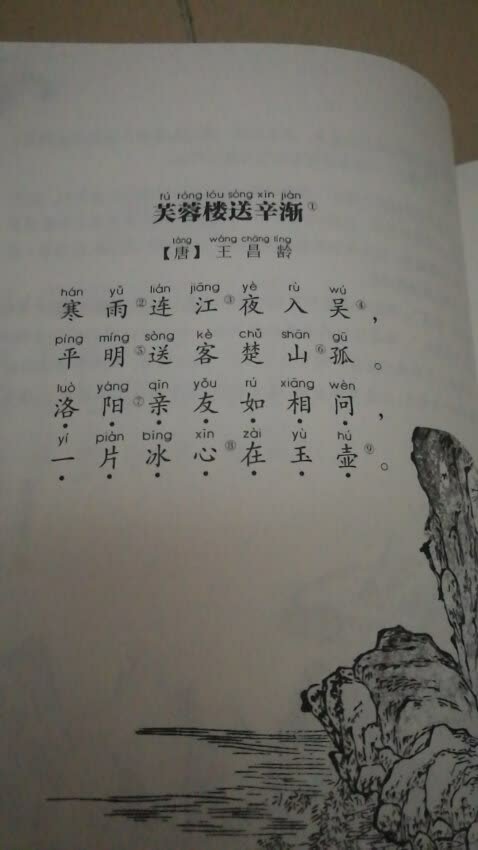 fú róng lóu sòng xīn jiàn
芙蓉楼送辛渐①
táng wáng chāng líng
【唐】王昌龄
hán yǔ lián jiāng yè rù wú
寒雨②连江③夜入吴④，
píng míng sòng kè chǔ shān gū
平明⑤送客楚山⑥孤。
luò yáng qīn yǒu rú xiāng wèn
洛阳⑦亲友如相问，
yí piàn bīng xīn zài yù hú
一片冰心⑧在玉壶⑨。